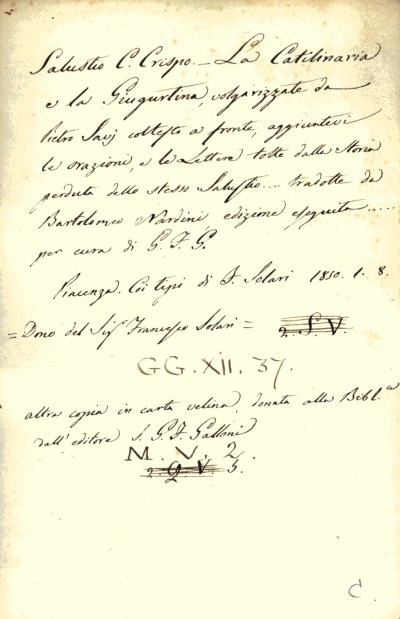 Salustio C. Crispo. — La Catilinaria
e la Giugurtina, volgarizzate da
Pietro Savj col testo a fronte, aggiuntevi
le orazioni, e le Lettere tolte dalla Storia
perduta dello stesso Salustio.... tradotte da
Bartolomeo Nardini, edizione eseguita.....
per cura di G. F. G.
Piacenza. Coi tipi di F. Solari 1850. 1. 8.
= Dono del Sigr Francesco Solari = 2. S. V.
GG. XII. 37.
altra copia in carta velina, donata alla Bibl.ca
dall' editore S. G. F. Galloni
M. V. 2.
2. Q V. 5.
C